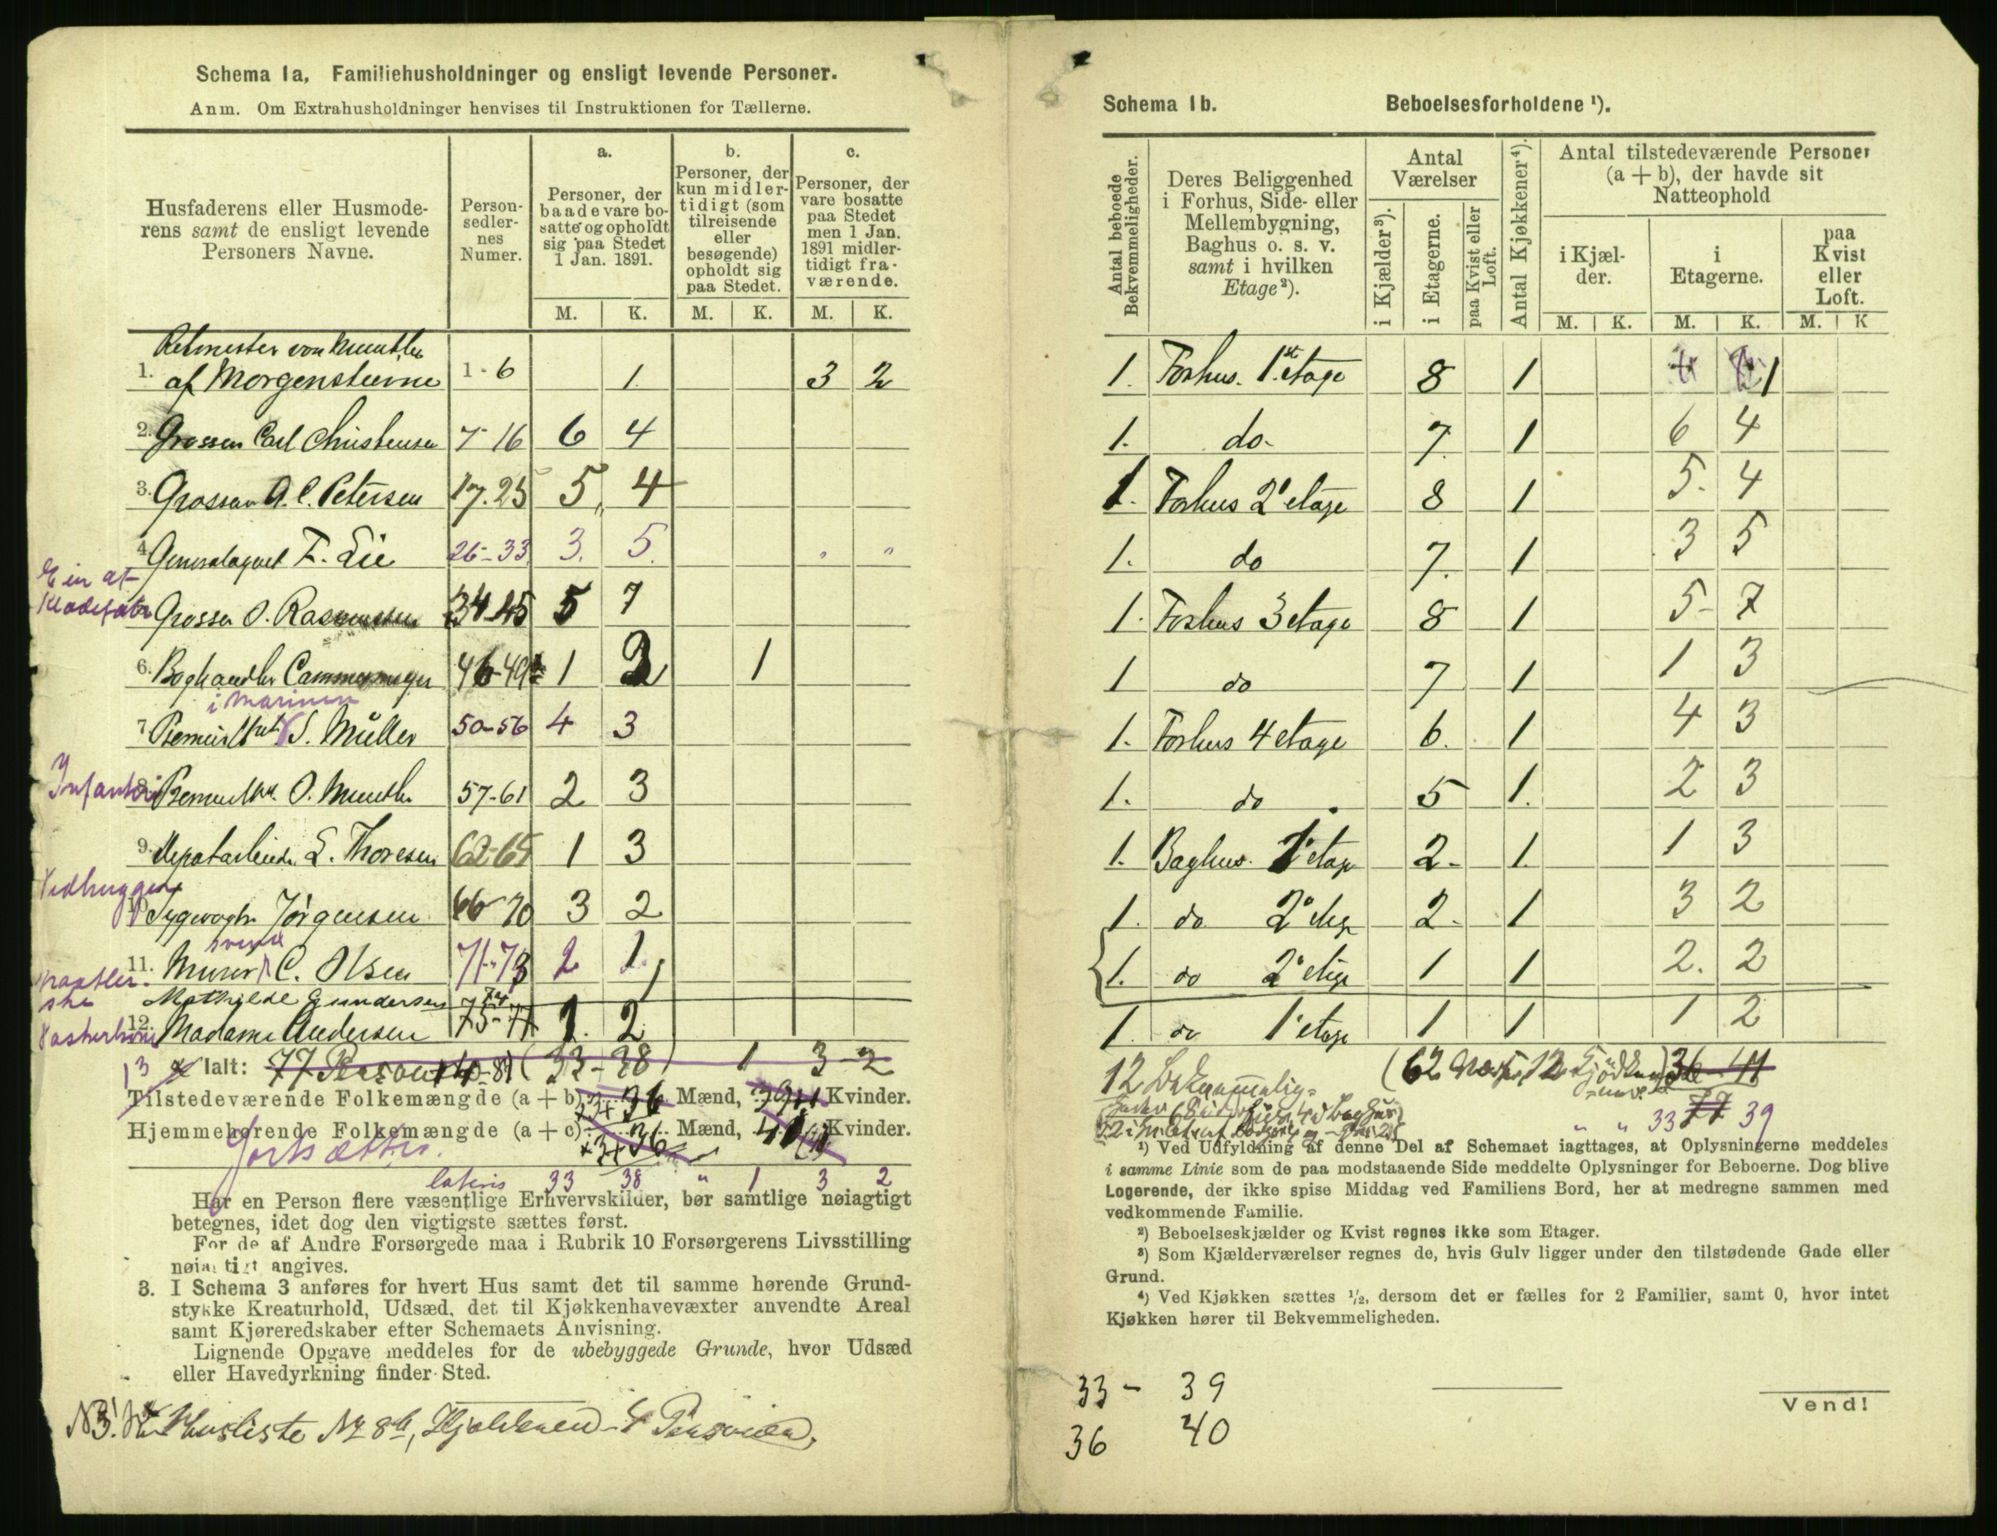 Schema 1a, Familiehusholdninger og ensligt levende Personer.
Anm. Om Extrahusholdninger henvises til Instruktionen for Tællerne.
Husfaderens eller Husmode-
rens samt de ensligt levende
Personers Navne.
Person-
sedler-
nes
Numer.
a.
Personer, der
baade vare bo-
satte og opholdt
sig paa Stedet
1 Jan. 1891.
b.
Personer, der
kun midler-
tidigt (som
tilreisende
eller
besøgende)
opholdt sig
paa Stedet.
c.
Personer, der
vare bosatte
paa Stedet
men 1 Jan.
1891 midler-
tidigt fra-
værende.
M. K. M. K. M. K.
Retmester von Munthe
1. af Morgenstierne 1-6 1 3 2
2. Grosser Carl Christensen 7-16 6 4
3. Grosser A. C. Petersen 17.25 5 4
4. Generalagent F. Lie 26-33 3. 5
Grosser O. Rasmussen 34-45 5 7
6. Boghandler Cammermeyer 46-49 1 1
i Marinen
7. Premierlt S. Müller 50-56 4 3
Infanteri
8. Premierlt. O. Munthe 57-61 2 3
9. L. Thoresen 62-65 1 3
Vedhugger
10. Sygevogter Jörgensen 66-70 3 2
svend
11. Murer C. Olsen 71-73 2 1
Mathilde Gundersen 74
12. Madame Andersen 75-77 1. 2
13 Ialt: 77 Personer (33-38) 1 3-2
Tilstedeværende Folkemængde (a + b) 36 Mænd, Kvinder.
Hjemmehørende Folkemængde (a + c) 36 Mænd, Kvinder.
Fortsættes.
lateris 33 38 " 1 3 2
Har en Person flere væsentlige Erhvervskilder, bør samtlige nøiagtigt
betegnes, idet dog den vigtigste sættes først.
For de af Andre Forsørgede maa i Rubrik 10 Forsørgerens Livsstilling
nøiagtigt angives.
3. I Schema 3 anføres for hvert Hus samt det til samme hørende Grund-
stykke Kreaturhold, Udsæd, det til Kjøkkenhavevæxter anvendte Areal
samt Kjøreredskaber efter Schemaets Anvisning.
Lignende Opgave meddeles for de ubebyggede Grunde, hvor Udsæd
eller Havedyrkning finder Sted.
Husliste No 8b, Kjælderen - 4 Personer.
Schema 1b. Beboelsesforholdene ¹).
Antal beboede
Bekvemmeligheder.
Deres Beliggenhed
i Forhus, Side- eller
Mellembygning,
Baghus o. s. v.
samt i hvilken
Etage²).
Antal
Værelser
i Kjælder³).
i Etagerne.
paa Kvist eller
Loft.
Antal Kjøkkener⁴).
Antal tilstedeværende Personer
(a + b), der havde sit
Natteophold
i Kjæl-
der.
i
Etagerne.
paa
Kvist
eller
Loft.
M. K. M. K. M. K
1. Forhus. 1st etage 8 1 1
1. do- 7. 1 6 4
1. Forhus 2 etage 8 1 5. 4
1. do 7. 1 3 5
1. Forhus 3 etage 8 1 5- 7
1 do 7 1 1 3
1. Forhus 4 etage 6. 1 4 3
1. do 5 1. 2 3
1. Baghus. 1 etage 2- 1. 1 3
1. do 2 etage 2- 1 3 2
1. do 2 etage 1 1 2. 2
1. do 1 etage 1 1 1 2
12 Bekvemmelig- (62 12 36-41
" " 33 77 39
¹) Ved Udfyldning af denne Del af Schemaet iagttages, at Oplysningerne meddeles
i samme Linie som de paa modstaaende Side meddelte Oplysninger for Beboerne. Dog blive
Logerende, der ikke spise Middag ved Familiens Bord, her at medregne sammen med
vedkommende Familie.
²) Beboelseskjælder og Kvist regnes ikke som Etager.
³) Som Kjælderværelser regnes de, hvis Gulv ligger under den tilstødende Gade eller
Grund.
⁴) Ved Kjøkken sættes ½, dersom det er fælles for 2 Familier, samt 0, hvor intet
Kjøkken hører til Bekvemmeligheden.
33 - 39
36 40
Vend!